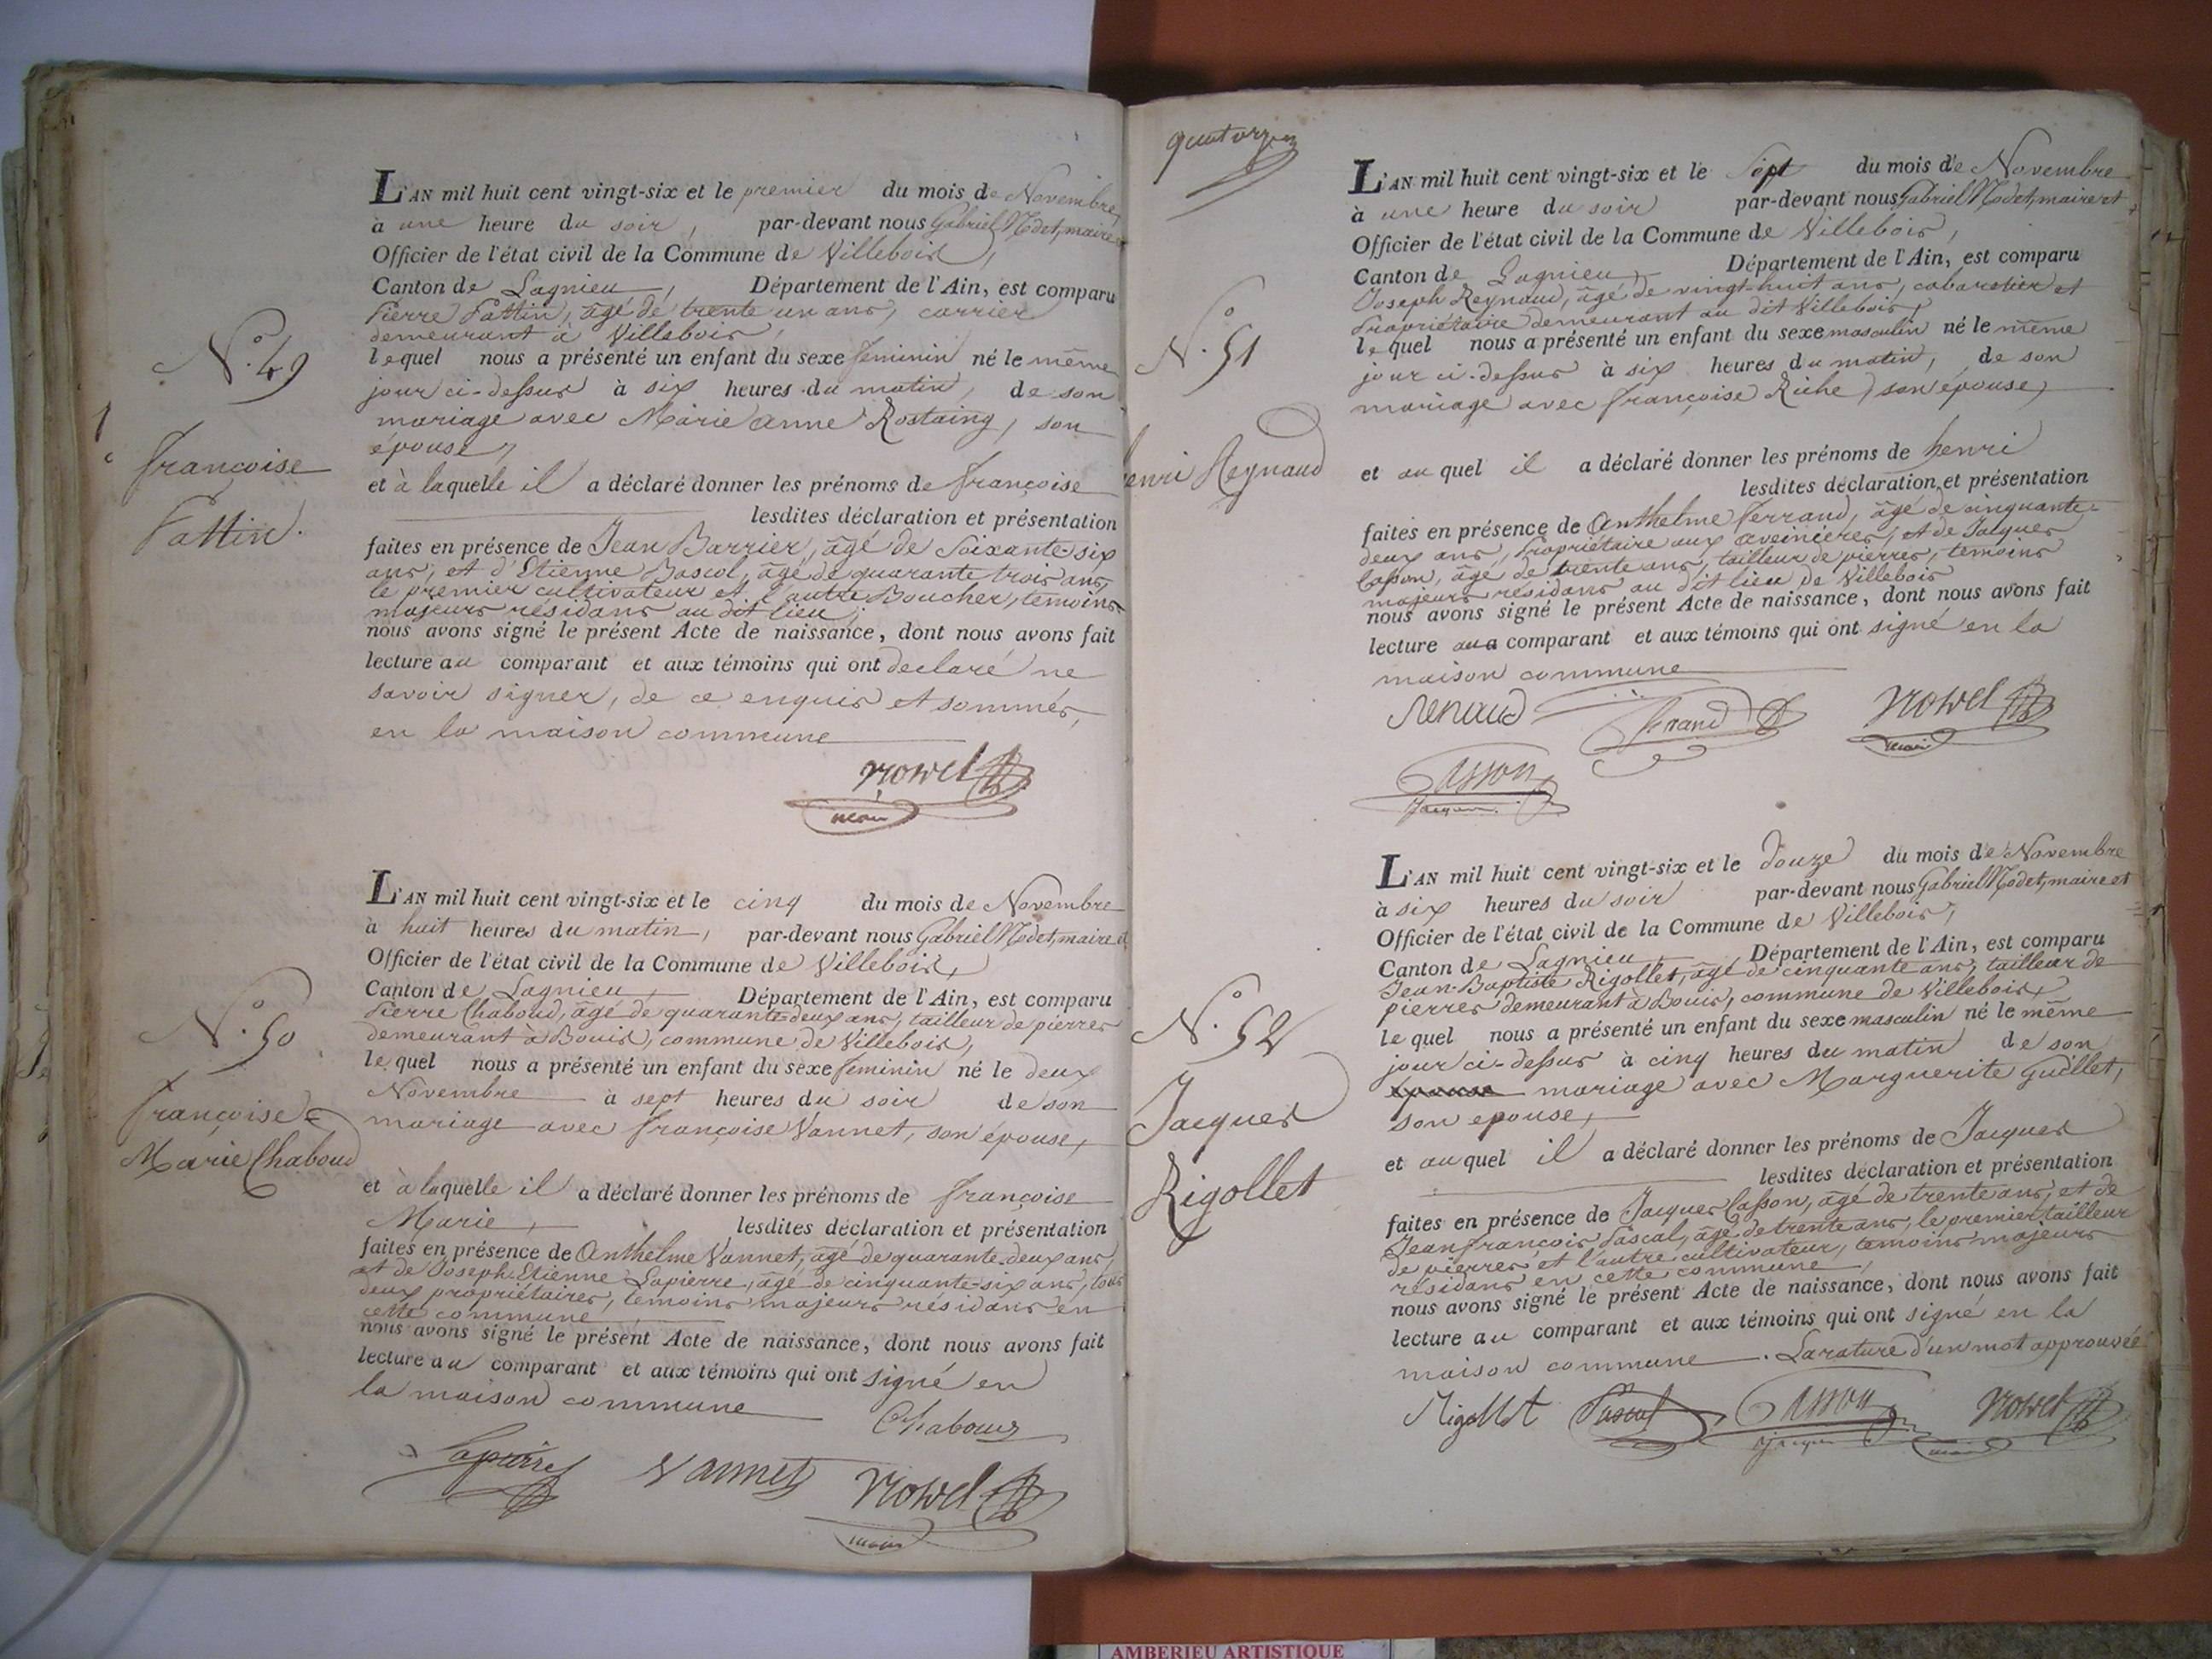 L'AN mil huit cent vingt-six et le premier du mois de Novembre
à une heure du soir, par-devant nous Gabriel Nodet, maire et
Officier de l'état civil de la Commune de Villebois,
Canton de Lagnieu, Département de l'Ain, est comparu
Pierre Pattin, âgé de trente un ans, carrier
demeurant à Villebois,
lequel nous a présenté un enfant du sexe feminin né le même
jour ci-dessus à six heures du matin, de son
mariage avec Marie Anne Rostaing, son
épouse,
et à laquelle il a déclaré donner les prénoms de françoise
lesdites déclaration et présentation
faites en présence de Jean Barrier, âgé de Soixante six
ans, et d'Etienne Bascol, âgé de quarante trois ans,
le premier cultivateur et l'autre Boucher, temoins
majeurs résidans au dit lieu,
nous avons signé le présent Acte de naissance, dont nous avons fait
lecture au comparant et aux témoins qui ont declaré ne
savoir signer, de ce enquis et sommés,
en la maison commune
maire
N.° 49
françoise
Pattin.
L'AN mil huit cent vingt-six et le cinq du mois de Novembre
à huit heures du matin, par-devant nous Gabriel Nodet, maire et
Officier de l'état civil de la Commune de Villebois,
Canton de Lagnieu, Département de l'Ain, est comparu
Pierre Chaboud, âgé de quarante deux ans, tailleur de pierres
demeurant à Bouis, commune de Villebois,
lequel nous a présenté un enfant du sexe feminin né le deux
Novembre à sept heures du soir de son
mariage avec françoise Vannet, son épouse,
et à laquelle il a déclaré donner les prénoms de françoise
Marie, lesdites déclaration et présentation
faites en présence de Anthelme Vannet, âgé de quarante deux ans,
et de Joseph Etienne Lapierre, âgé de cinquante-six ans, tous
deux propriétaires, temoins majeurs résidans en
cette commune
nous avons signé le présent Acte de naissance, dont nous avons fait
lecture au comparant et aux témoins qui ont signé en
la maison commune
Chaboud
Lapierre Vannet
maire
N.° 50
françoise
Marie Chaboud
quatorze
L'AN mil huit cent vingt-six et le Sept du mois de Novembre
à une heure du soir par-devant nous Gabriel Nodet, maire et
Officier de l'état civil de la Commune de Villebois,
Canton de Lagnieu, Département de l'Ain, est comparu
Joseph Reynaud, âgé de vingt-huit ans, cabaretier et
Propriétaire demeurant au dit Villebois,
lequel nous a présenté un enfant du sexe masculin né le même
jour ci-dessus à six heures du matin, de son
mariage avec françoise Riche, son épouse,
et au quel il a déclaré donner les prénoms de henri
lesdites déclaration et présentation
faites en présence de Anthelme Ferrand, âgé de cinquante-
deux ans, Propriétaire aux aveinieres, et de Jacques
Casson, âgé de trente ans, tailleur de pierres, temoins
majeurs résidans au dit lieu de Villebois
nous avons signé le présent Acte de naissance, dont nous avons fait
lecture au comparant et aux témoins qui ont signé en la
maison commune
Renaud Ferrand
maire
Casson
Jacques
N.° 51
henri Reynaud
L'AN mil huit cent vingt-six et le douze du mois de Novembre
à six heures du soir par-devant nous Gabriel Nodet, maire et
Officier de l'état civil de la Commune de Villebois,
Canton de Lagnieu, Département de l'Ain, est comparu
Jean-Baptiste Rigollet, âgé de cinquante ans, tailleur de
pierres demeurant à Bouis, commune de Villebois,
lequel nous a présenté un enfant du sexe masculin né le même
jour ci-dessus à cinq heures du matin de son
mariage avec Marguerite Guillet,
son epouse,
et au quel il a déclaré donner les prénoms de Jacques
lesdites déclaration et présentation
faites en présence de Jacques Casson, âgé de trente ans, et de
Jean françois Pascal, âgé de trente ans, le premier tailleur
de pierres et l'autre cultivateur, temoins majeurs
résidans en cette commune,
nous avons signé le présent Acte de naissance, dont nous avons fait
lecture au comparant et aux témoins qui ont signé en la
maison commune. La rature d'un mot approuvée
Rigollet Pascal Casson
Jacques maire
N.° 52
Jacques
Rigollet
AMBERIEU ARTISTIQUE